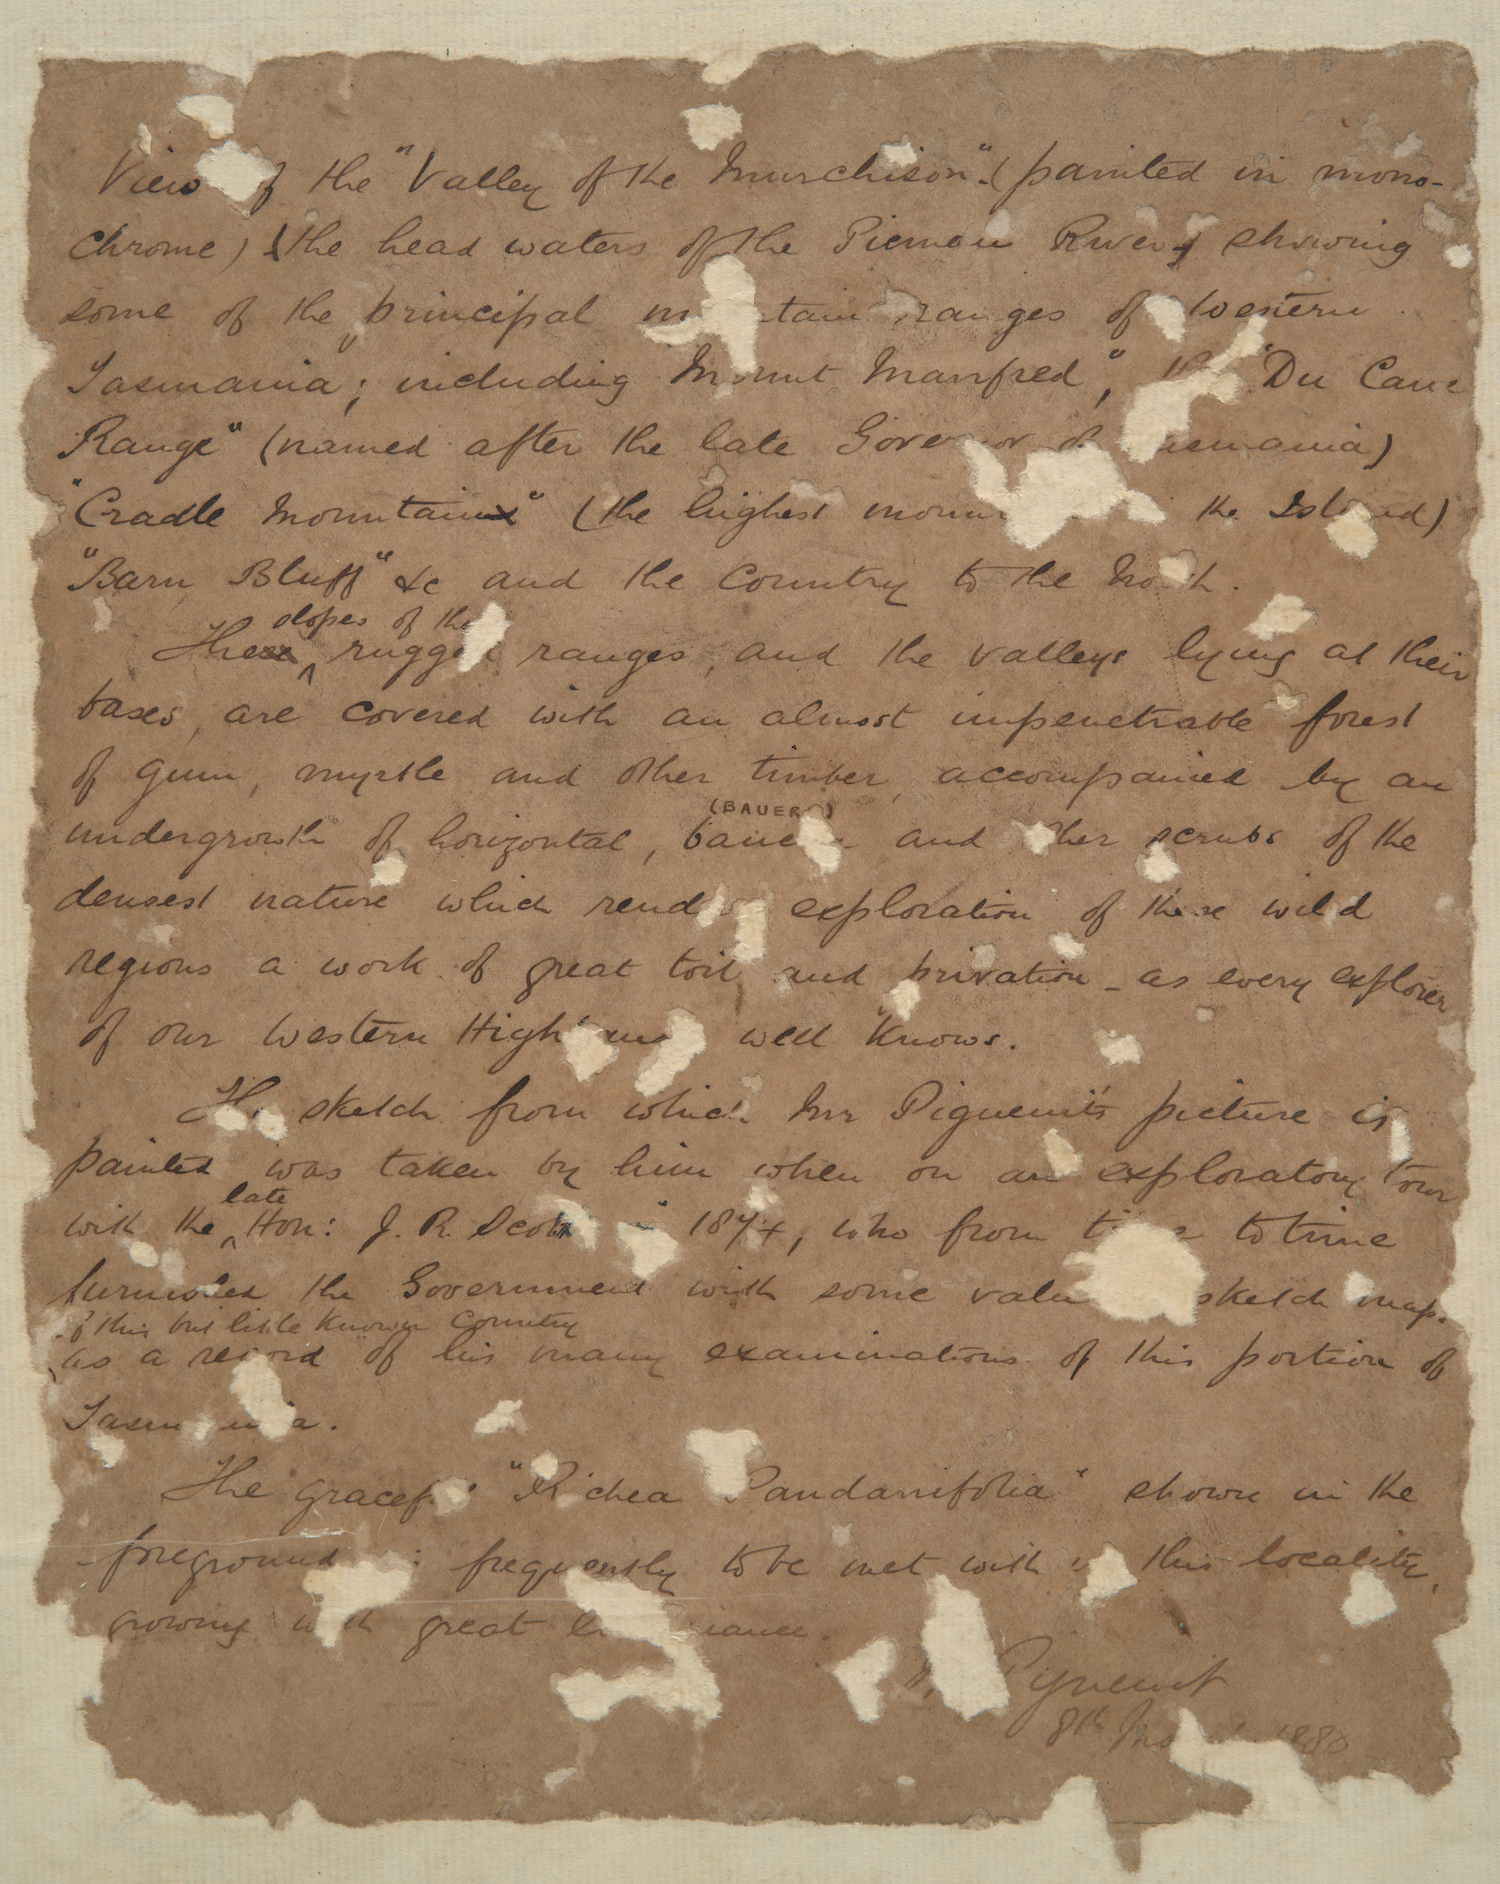 View of the "Valley of the Murchison". (painted in mono-
chrome) the head waters of the Pieman River, showing
some of the principal m tain ranges of Western
Tasmania; including Mount Manfred", the "Du Cane
Range" (named after the late Governor of asmania)
"Cradle Mountain" (the highest moun the Island)
"Barn Bluff" &c and the country to the North.
slopes of the
These rugged ranges, and the valleys lying at their
bases, are covered with an almost impenetrable forest
of gum, myrtle and other timber, accompanied by an
(BAUER )
undergrowth of horizontal, baue and other scrubs of the
densest nature which rend exploration of these wild
regions a work of great toil and privation - as every explorer
of our Western High an well knows.
The sketch from which Mr Piguenit's picture is
painted was taken by him when on an exploratory tour
late
with the Hon: J. R. Scott 1874, who from ti e to time
furnished the Government with some valu sketch maps
of this but little known country
as a record of his many examinations of this portion of
Tasm nia.
The gracef "Richea Pandanifolia" shown in the
foreground frequently to be met with in this locality,
growing with great l iance.
Piguenit
8th Ma 1880